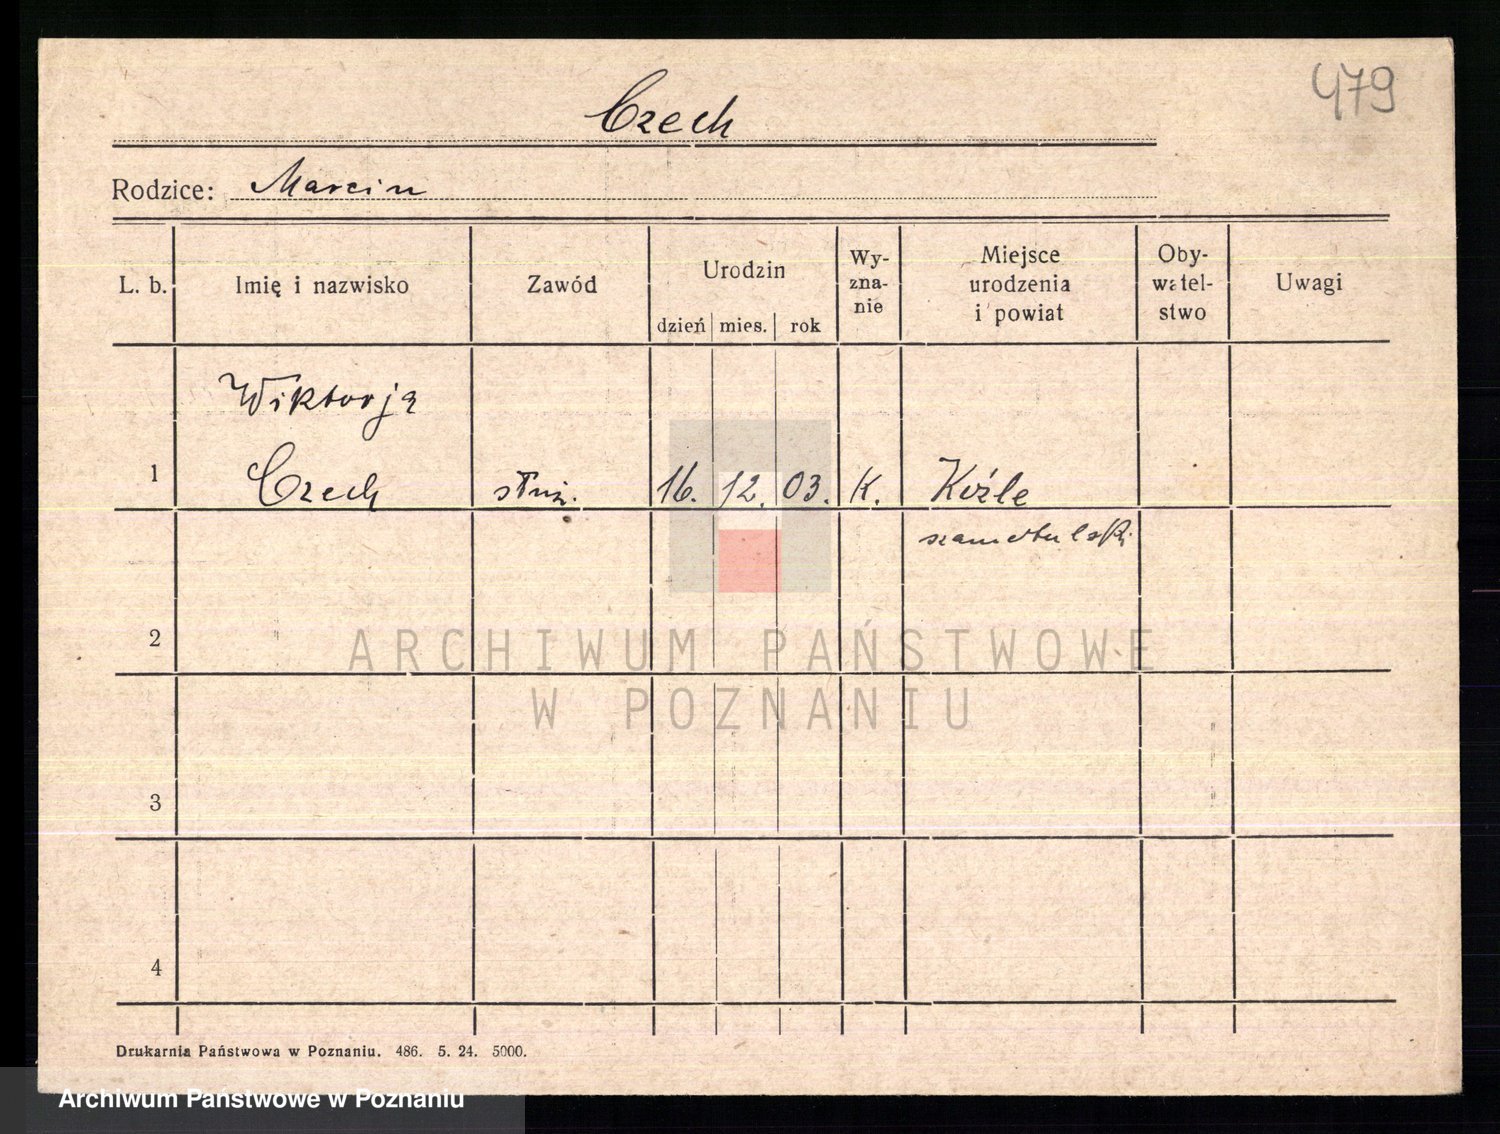 479
Czech
Rodzice: Marcin
L. b.
Imię i nazwisko
Zawód
Urodzin
dzień mies. rok
Wy-
zna-
nie
Miejsce
urodzenia
i powiat
Oby-
watel-
stwo
Uwagi
Wiktorja
1 Czech służ. 16. 12. 03. K. Koźle
szamotulski
2
3
4
ARCHIWUM PAŃSTWOWE
W POZNANIU
Drukarnia Państwowa w Poznaniu. 486. 5. 24. 5000.
Archiwum Państwowe w Poznaniu